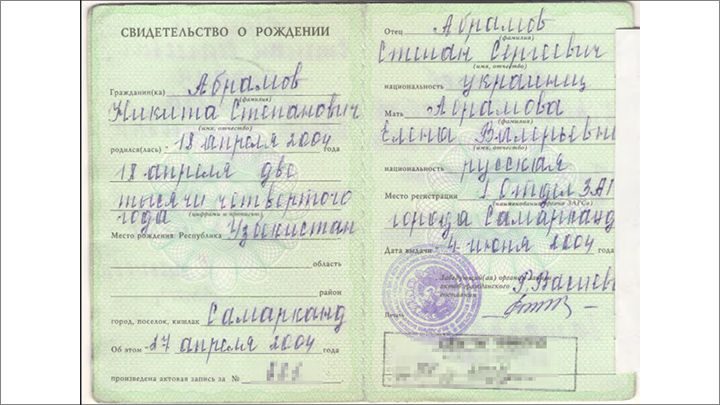 СВИДЕТЕЛЬСТВО О РОЖДЕНИИ
Гражданин(ка) Абрамов
(фамилия)
Никита Степанович
(имя, отчество)
родился(лась) - 18 апреля 2004 года
18 апреля две
тысячи четвертого
года
(цифрами и прописью)
Место рождения: Республика Узбекистан
область
район
город, поселок, кишлак Самарканд
Об этом - 27 апреля 2004 года
произведена актовая запись за №
Отец Абрамов
(фамилия)
Степан Сергеевич
(имя, отчество)
национальность украинец
Мать Абрамова
(фамилия)
Елена Валерьевн
(имя, отчество)
национальность русская
Место регистрации I Отдел ЗАГ
(наименование органа ЗАГСа)
города Самарканд
Дата выдачи - 4 июня 2004 года
Заведующий(ая) органа записи
актов гражданского
состояния
Печать